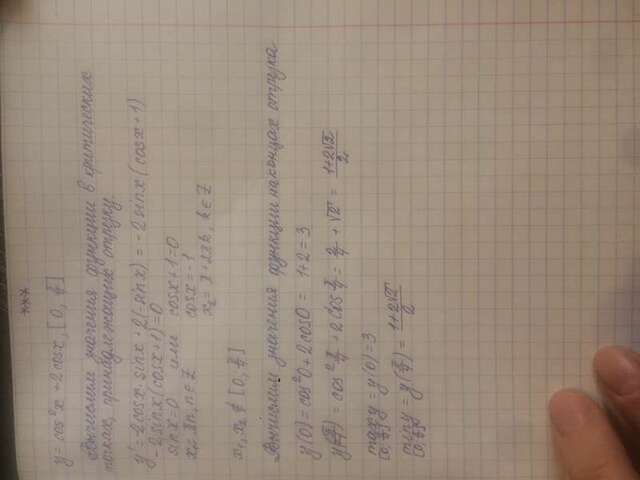 ***
y = cos²x + 2cosx, [0, π/4]
Вычислим значения функции в критических
точках, принадлежащих отрезку.
y' = -2cosx · sinx + 2(-sinx) = -2sinx(cosx+1)
-2sinx(cosx+1)=0
sinx=0 или cosx+1=0
x₁= πn, n∈Z cosx=-1
x₂= π+2πk, k∈Z
x₁, x₂ ∉ [0, π/4]
Вычислим значения функции на концах отрезка
y(0)=cos²0+2cos0 = 1+2=3
y(π/4) = cos²π/4 + 2cosπ/4 = 2/4 + √2 = (1+2√2)/2
max y = y(0)=3
[0, π/4]
min y = y(π/4) = (1+2√2)/2
[0, π/4]